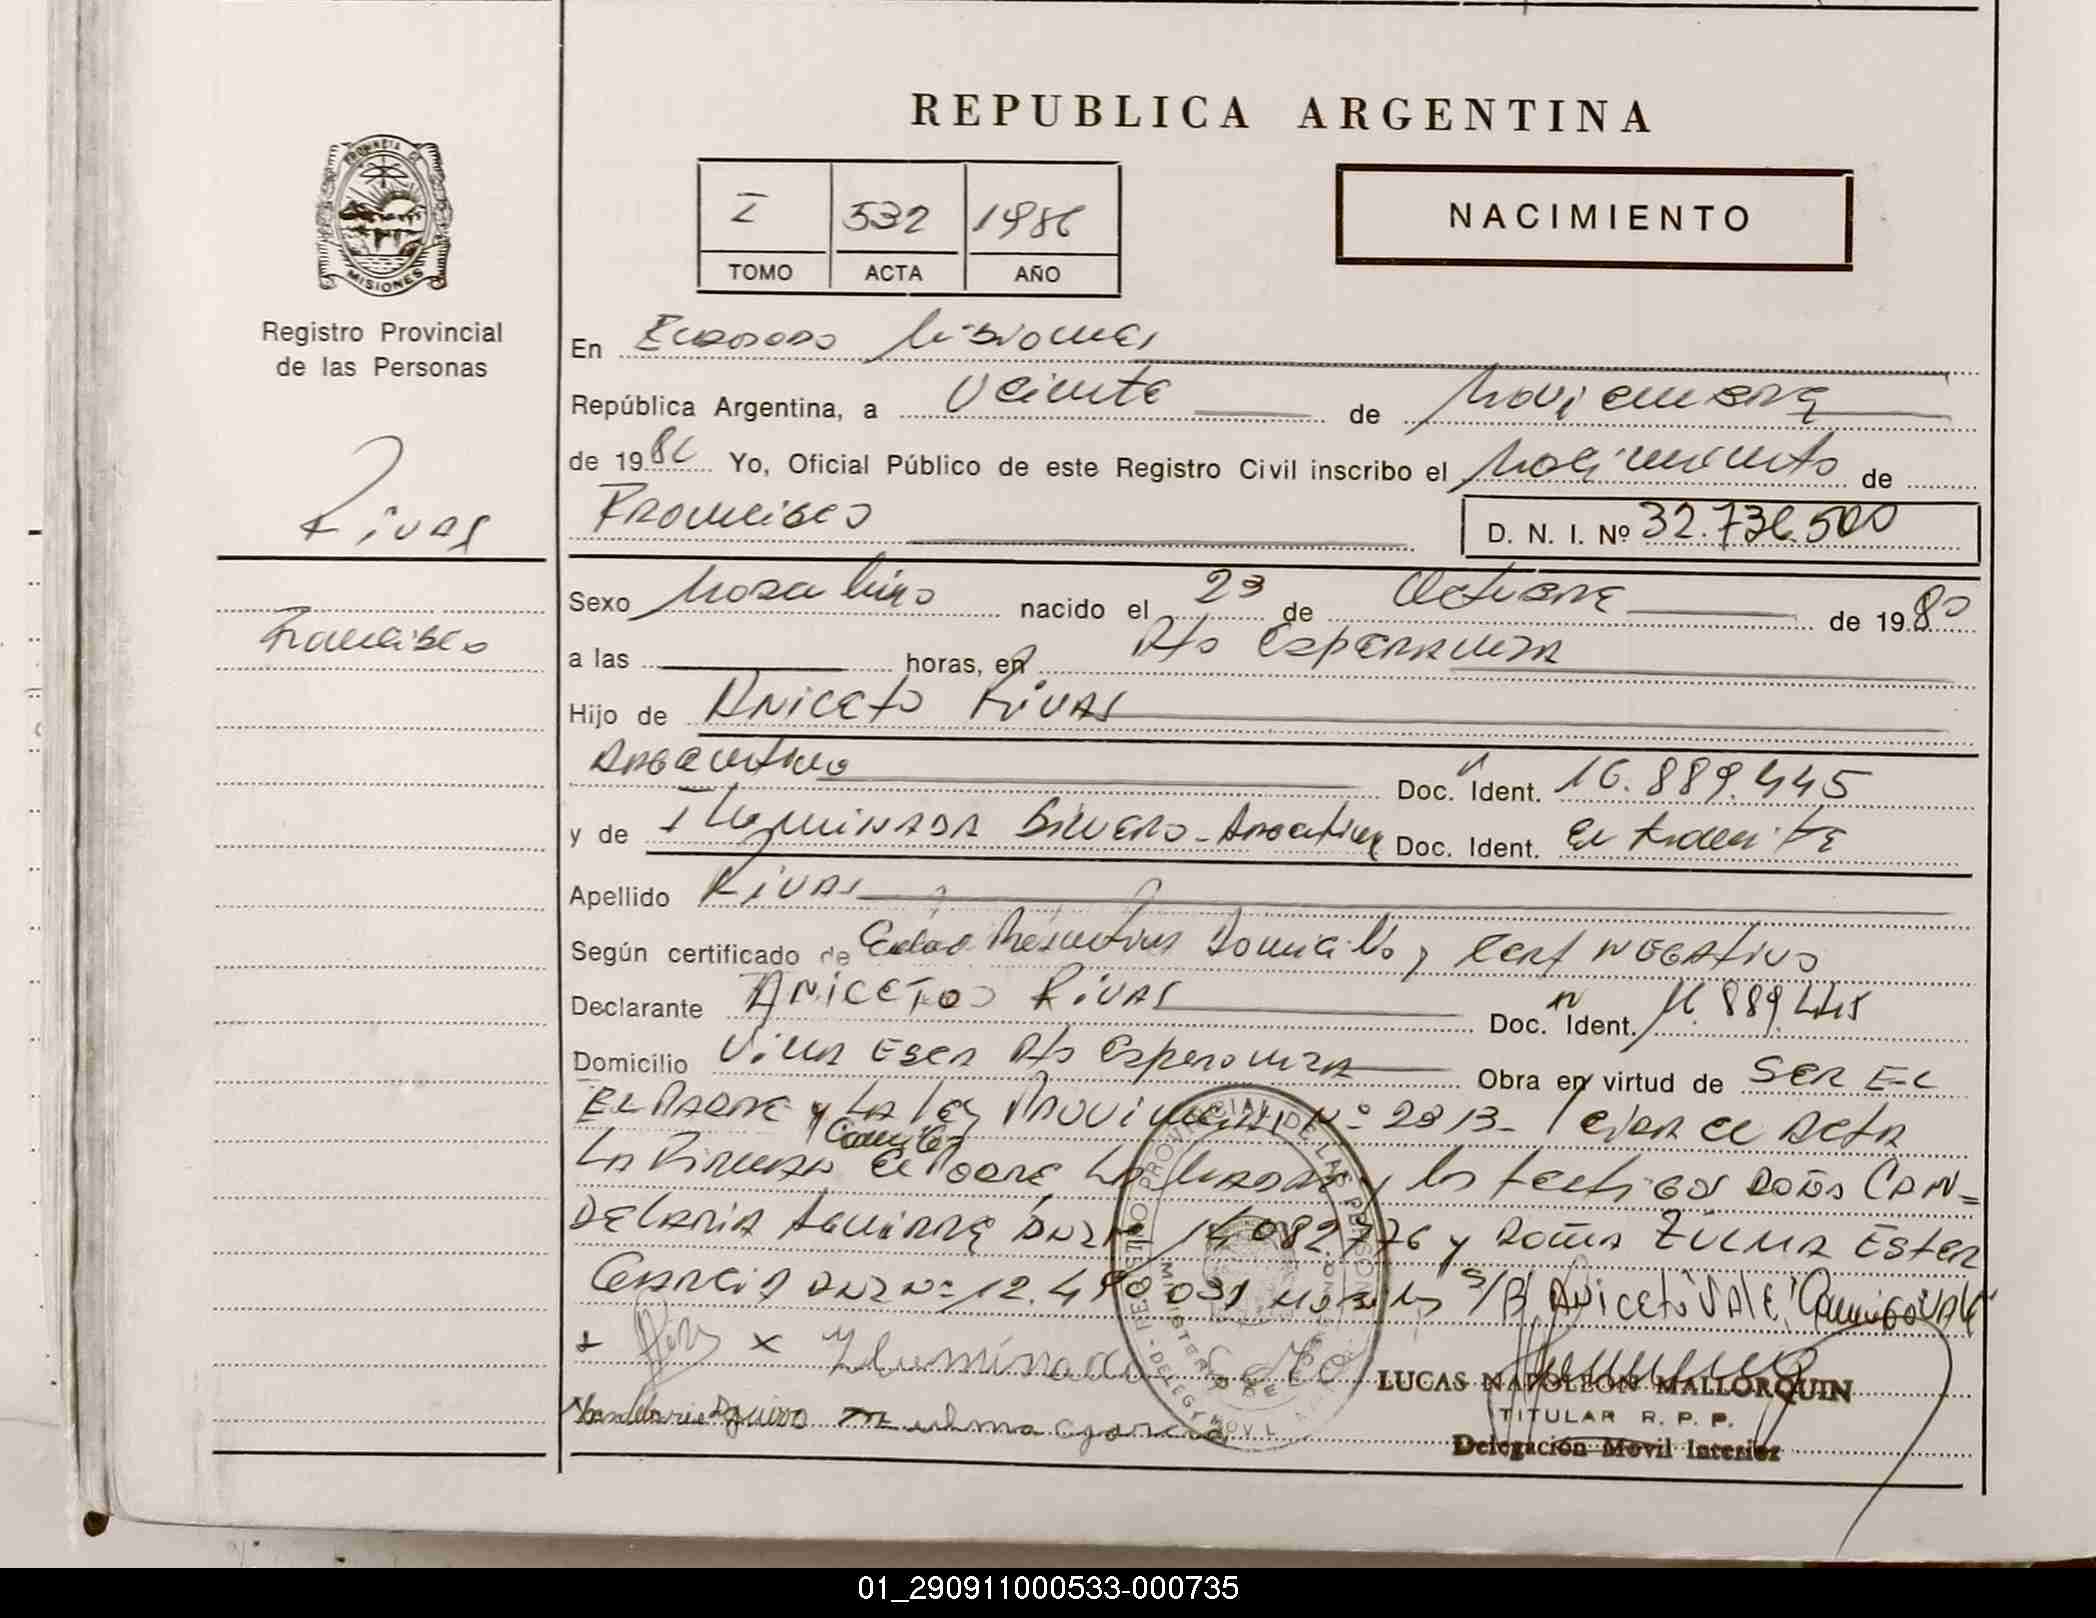 REPUBLICA ARGENTINA
PROVINCIA DE
MISIONES
Registro Provincial
de las Personas
Rivas
Francisco
I 532 1986
TOMO ACTA AÑO
NACIMIENTO
En Eldorado Misiones
República Argentina, a Veinte de Noviembre
de 1986 Yo, Oficial Público de este Registro Civil inscribo el Nacimiento de
Francisco D. N. I. Nº 32.736.500
Sexo Masculino nacido el 23 de Octubre de 1980
a las horas, en Pto Esperanza
Hijo de Aniceto Rivas
Argentino Doc. Ident. 16.889.445
y de Iluminada Argentina Doc. Ident. En tramite
Apellido Rivas
Según certificado de Edad Presuntiva Domicilio y Cert Negativo
Declarante Aniceto Rivas Doc. Ident. 16.889.445
Domicilio Villa Pto Esperanza Obra en virtud de SER EL
EL PADRE y LA Ley Provincial Nº 2813- Leida el Acta
La Firman el Padre La Madre y los testigos Doña CAN=
DELARIA Aguirre DNI Nº 14.082.776 y Doña ZULMA Ester
Garcia DNI Nº 12.490.031 S/B Aniceto VALE
x Iluminada
LUCAS NAPOLEON MALLORQUIN
Aguirre Zulma Garcia
TITULAR R. P. P.
Delegación Movil Interior
01_290911000533-000735